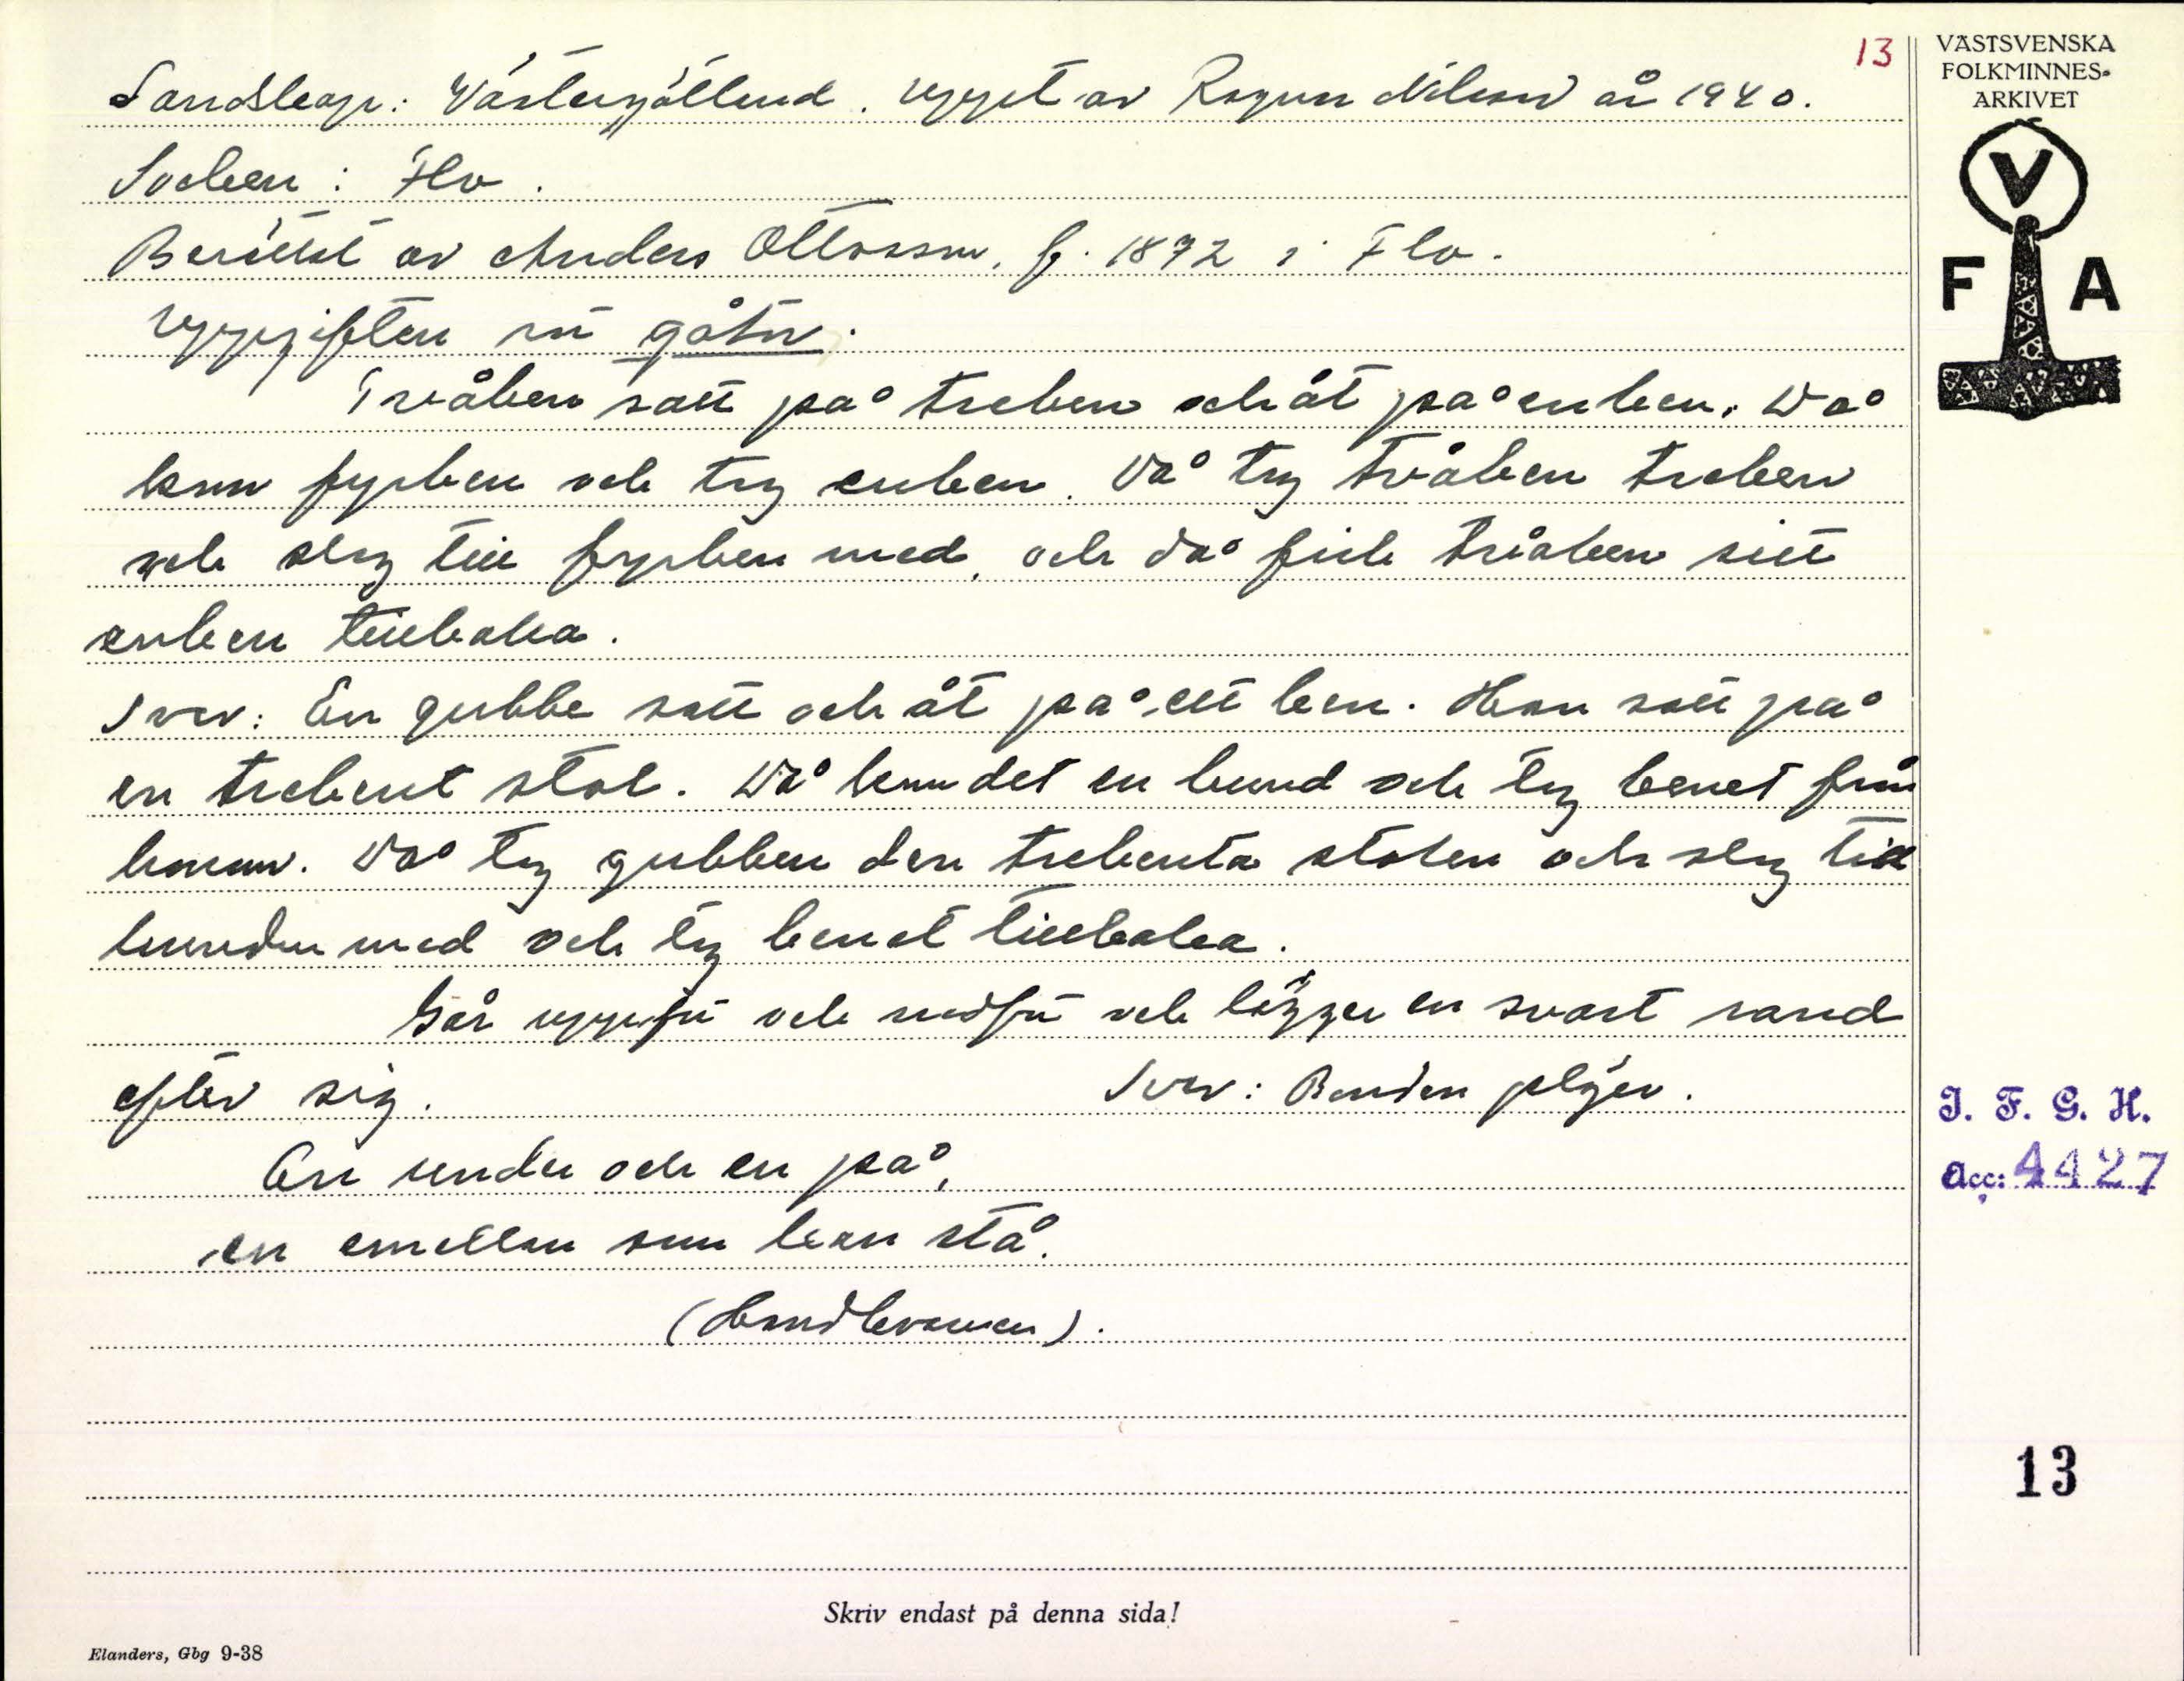 13
Landskap: Västergötland. Uppt. av Ragnar Nilsson år 1940.
Socken: Flo.
Berättat av Anders Ottosson, f. 1872 i Flo.
Uppgiften rör gåtor.
Tvåben satt på treben och åt på enben. Då
kom fyrben och tog enben. Då tog tvåben treben
och slog till fyrben med, och då fick tvåben sitt
enben tillbaka.
Svar: En gubbe satt och åt på ett ben. Han satt på
en trebent stol. Då kom det en hund och tog benet från
honom. Då tog gubben den trebenta stolen och slog till
hunden med och tog benet tillbaka.
Går uppför och nedför och lägger en svart rand
efter sig. Svar: Bonden plöjer.
En under och en på,
en emellan som kan stå.
(Handkvarnen).
Skriv endast på denna sida!
Elanders, Gbg 9-38
VÄSTSVENSKA
FOLKMINNES-
ARKIVET
V
F A
I. F. G. H.
Acc: 4427
13